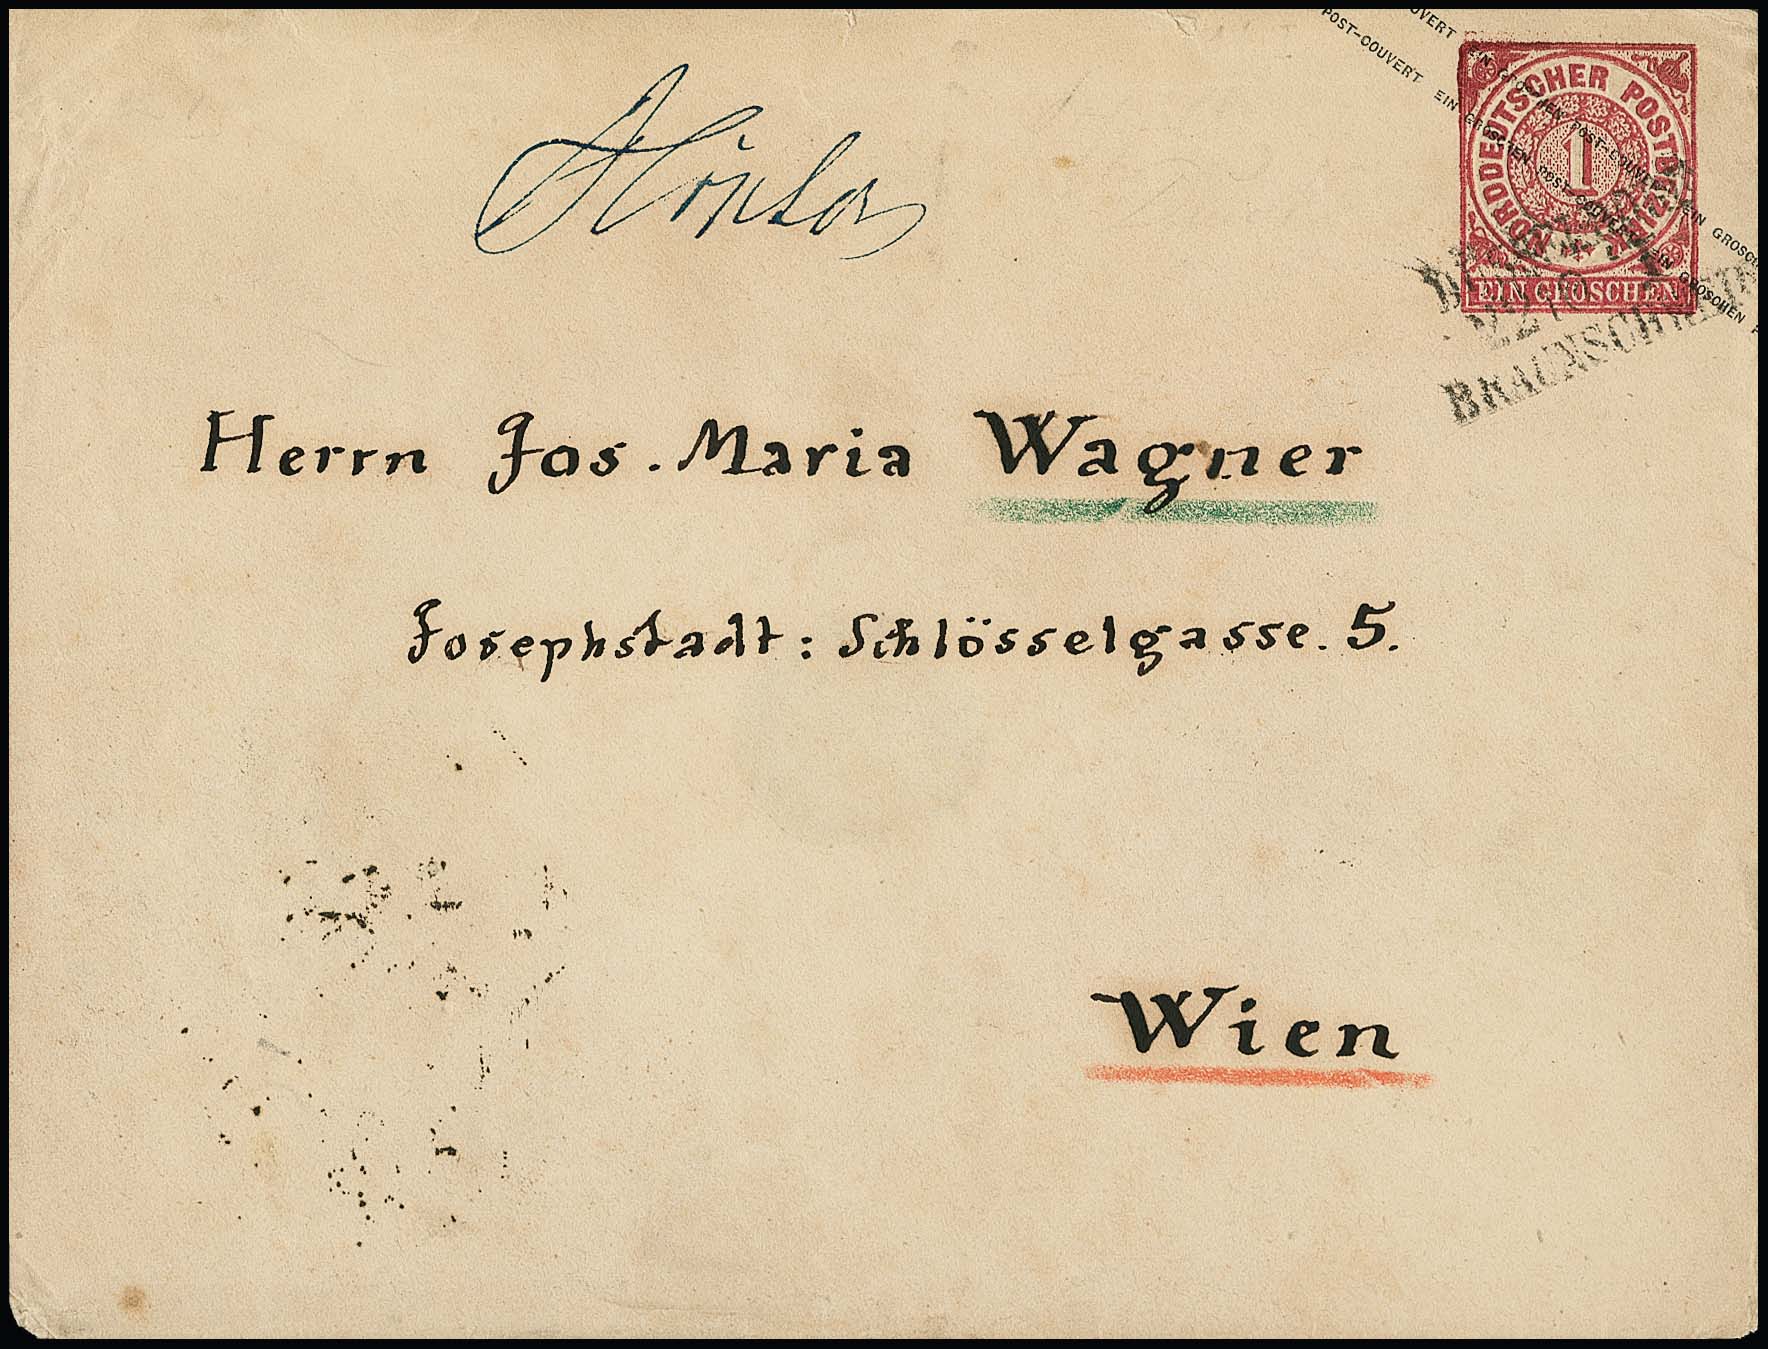 POST-COUVERT EIN GROSCHEN POST-COUVERT EIN GROSCHEN
POST-COUVERT EIN GROSCHEN POST-COUVERT EIN GROSCHEN
NORDDEUTSCHER POSTBEZIRK
1
EIN GROSCHEN
BRAUNSCHWEIG
Herrn Jos. Maria Wagner
Josephstadt: Schlösselgasse. 5.
Wien